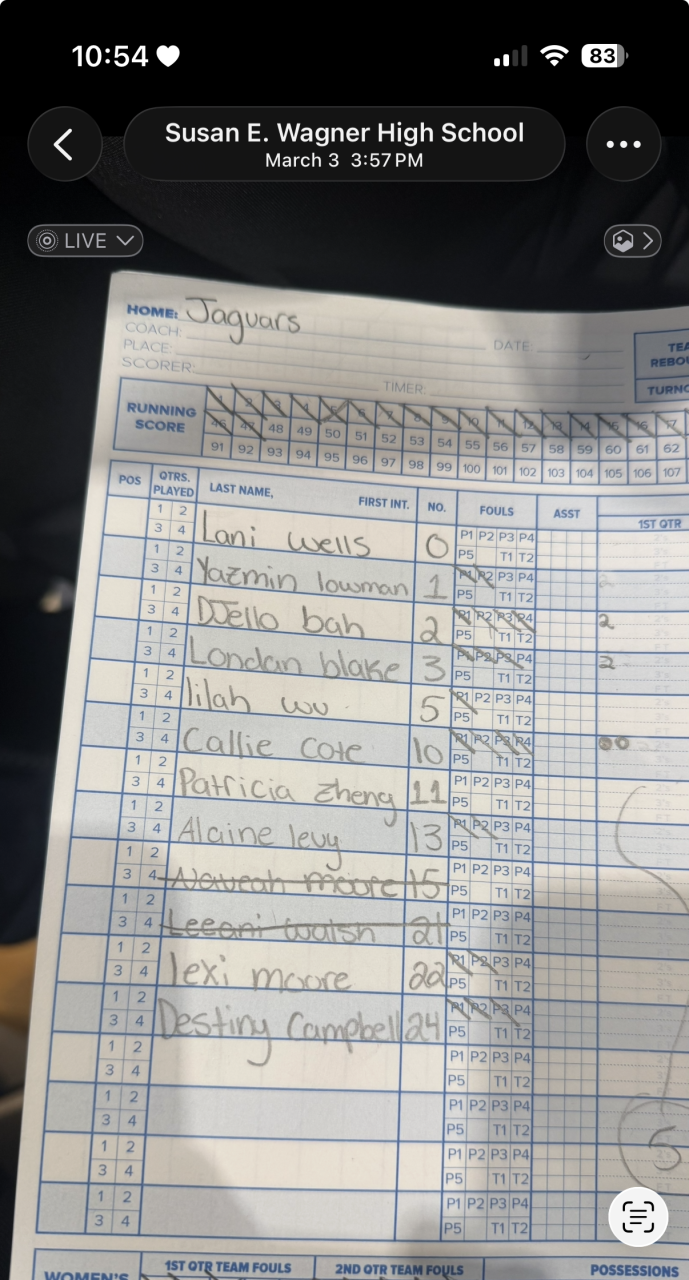 10:54
83
Susan E. Wagner High School
March 3 3:57 PM
LIVE
HOME: Jaguars
COACH:
PLACE: DATE:
SCORER: TIMER:
RUNNING SCORE
1 2 3 4 5 6 7 8 9 10 11 12 13 14 15 16 17
46 47 48 49 50 51 52 53 54 55 56 57 58 59 60 61 62
91 92 93 94 95 96 97 98 99 100 101 102 103 104 105 106 107
POS QTRS. PLAYED LAST NAME, FIRST INT. NO. FOULS ASST 1ST QTR
1 2 P1 P2 P3 P4
3 4 Lani wells 0 P5 T1 T2
1 2 P1 P2 P3 P4
3 4 Yazmin lowman 1 P5 T1 T2
1 2 P1 P2 P3 P4 2
3 4 DJello bah 2 P5 T1 T2
1 2 P1 P2 P3 P4 2
3 4 Londan blake 3 P5 T1 T2
1 2 P1 P2 P3 P4
3 4 lilah wu 5 P5 T1 T2
1 2 P1 P2 P3 P4
3 4 Callie Cote 10 P5 T1 T2
1 2 P1 P2 P3 P4
3 4 Patricia Zheng 11 P5 T1 T2
1 2 P1 P2 P3 P4
3 4 Alaine levy 13 P5 T1 T2
1 2 P1 P2 P3 P4
3 4 Naveah moore 15 P5 T1 T2
1 2 P1 P2 P3 P4
3 4 Leeani walsh 21 P5 T1 T2
1 2 P1 P2 P3 P4
3 4 lexi moore 22 P5 T1 T2
1 2 P1 P2 P3 P4
3 4 Destiny Campbell 24 P5 T1 T2
1 2 P1 P2 P3 P4
3 4 P5 T1 T2
1 2 P1 P2 P3 P4
3 4 P5 T1 T2
1 2 P1 P2 P3 P4 5
3 4 P5 T1 T2
1 2 P1 P2 P3 P4
3 4 P5 T1 T2
WOMEN'S 1ST QTR TEAM FOULS 2ND QTR TEAM FOULS POSSESSIONS